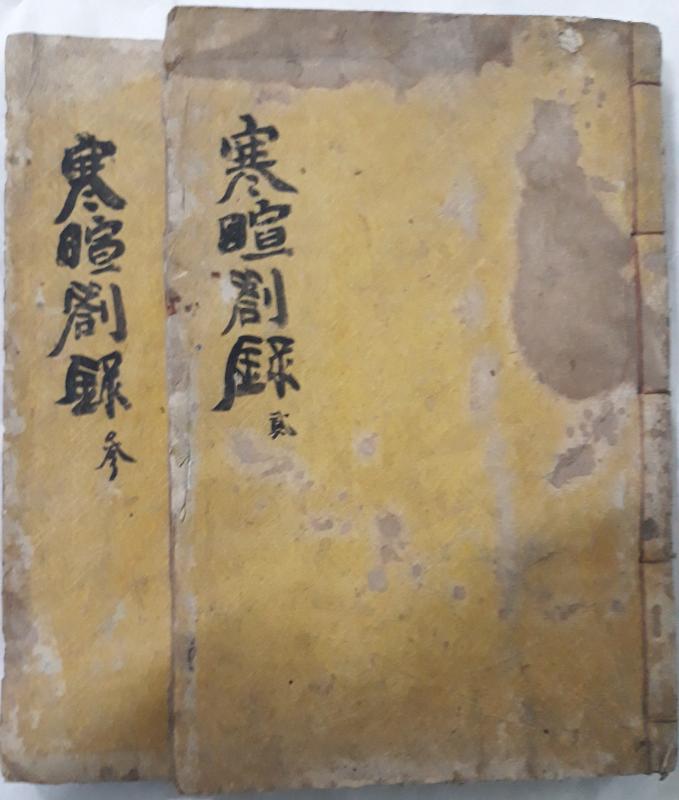 寒暄劄録 貳
寒暄劄録 參